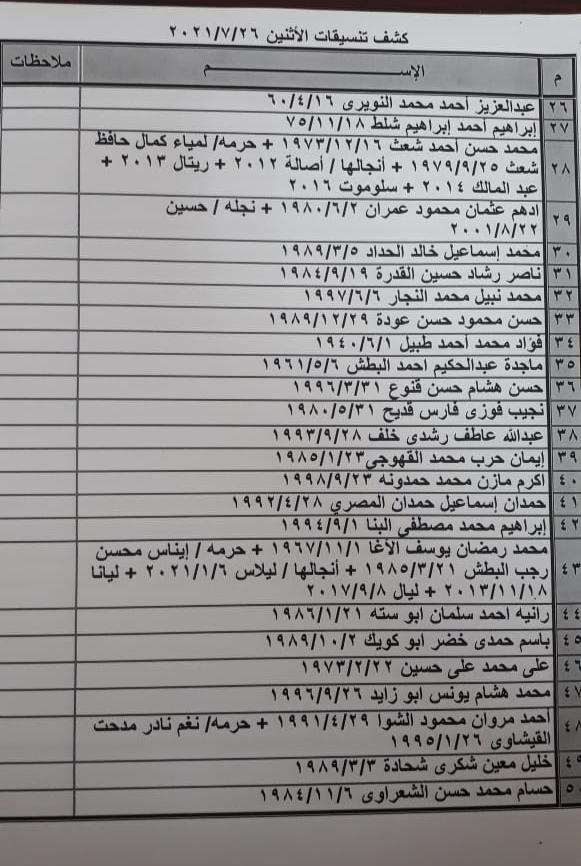 كشف تنسيقات الأثنين ٢٠٢١/٧/٢٦
م الإســـــم ملاحظات
٢٦ عبدالعزيز أحمد محمد النويرى ٦٠/٤/١٦
٢٧ إبراهيم أحمد إبراهيم شلط ٧٥/١١/١٨
٢٨ محمد حسن أحمد شعث ١٩٧٣/١٢/١٦ + حرمه/ لمياء كمال حافظ
شعث ١٩٧٩/٩/٢٥ + أنجالها / أصالة ٢٠١٢ + ريتال ٢٠١٣ +
عبد المالك ٢٠١٤ + سلوموت ٢٠١٦
٢٩ ادهم عثمان محمود عمران ١٩٨٠/٦/٢ + نجله / حسين
٢٠٠١/٨/٢٢
٣٠ محمد إسماعيل خالد الحداد ١٩٨٩/٣/٥
٣١ ناصر رشاد حسين القدرة ١٩٨٤/٩/١٩
٣٢ محمد نبيل محمد النجار ١٩٩٧/٦/٦
٣٣ حسن محمود حسن عودة ١٩٨٩/١٢/٢٩
٣٤ فؤاد محمد أحمد طبيل ١٩٤٠/٦/١
٣٥ ماجدة عبدالحكيم احمد البطش ١٩٦١/٥/٦
٣٦ حسن هشام حسن قنوع ١٩٩٦/٣/٣١
٣٧ نجيب فوزى فارس قديح ١٩٨٠/٥/٣١
٣٨ عبدالله عاطف رشدى خلف ١٩٩٣/٩/٢٨
٣٩ إيمان حرب محمد القهوجي ١٩٨٥/١/٢٣
٤٠ اكرم مازن محمد حمدونه ١٩٩٨/٩/٢٣
٤١ حمدان إسماعيل حمدان المصري ١٩٩٢/٤/٢٨
٤٢ إبراهيم محمد مصطفى البنا ١٩٩٤/٩/١
٤٣ محمد رمضان يوسف الأغا ١٩٦٧/١١/١ + حرمه / إيناس محسن
رجب البطش ١٩٨٥/٣/٢١ + أنجالها / ليلاس ٢٠٢١/١/٦ + ليانا
٢٠١٣/١١/١٨ + ليال ٢٠١٧/٩/٨
٤٤ رانيه احمد سلمان ابو سته ١٩٨٦/١/٢١
٤٥ باسم حمدى خضر ابو كويك ١٩٨٩/١٠/٢
٤٦ على محمد على حسين ١٩٧٣/٢/٢٢
٤٧ محمد هشام يونس ابو زايد ١٩٩٦/٩/٢٦
٤٨ احمد مروان محمود الشوا ١٩٩١/٤/٢٩ + حرمه/ نغم نادر مدحت
القيشاوى ١٩٩٥/١/٢٦
٤٩ خليل معين شكرى شحادة ١٩٨٩/٣/٣
٥٠ حسام محمد حسن الشعراوى ١٩٨٤/١١/٦